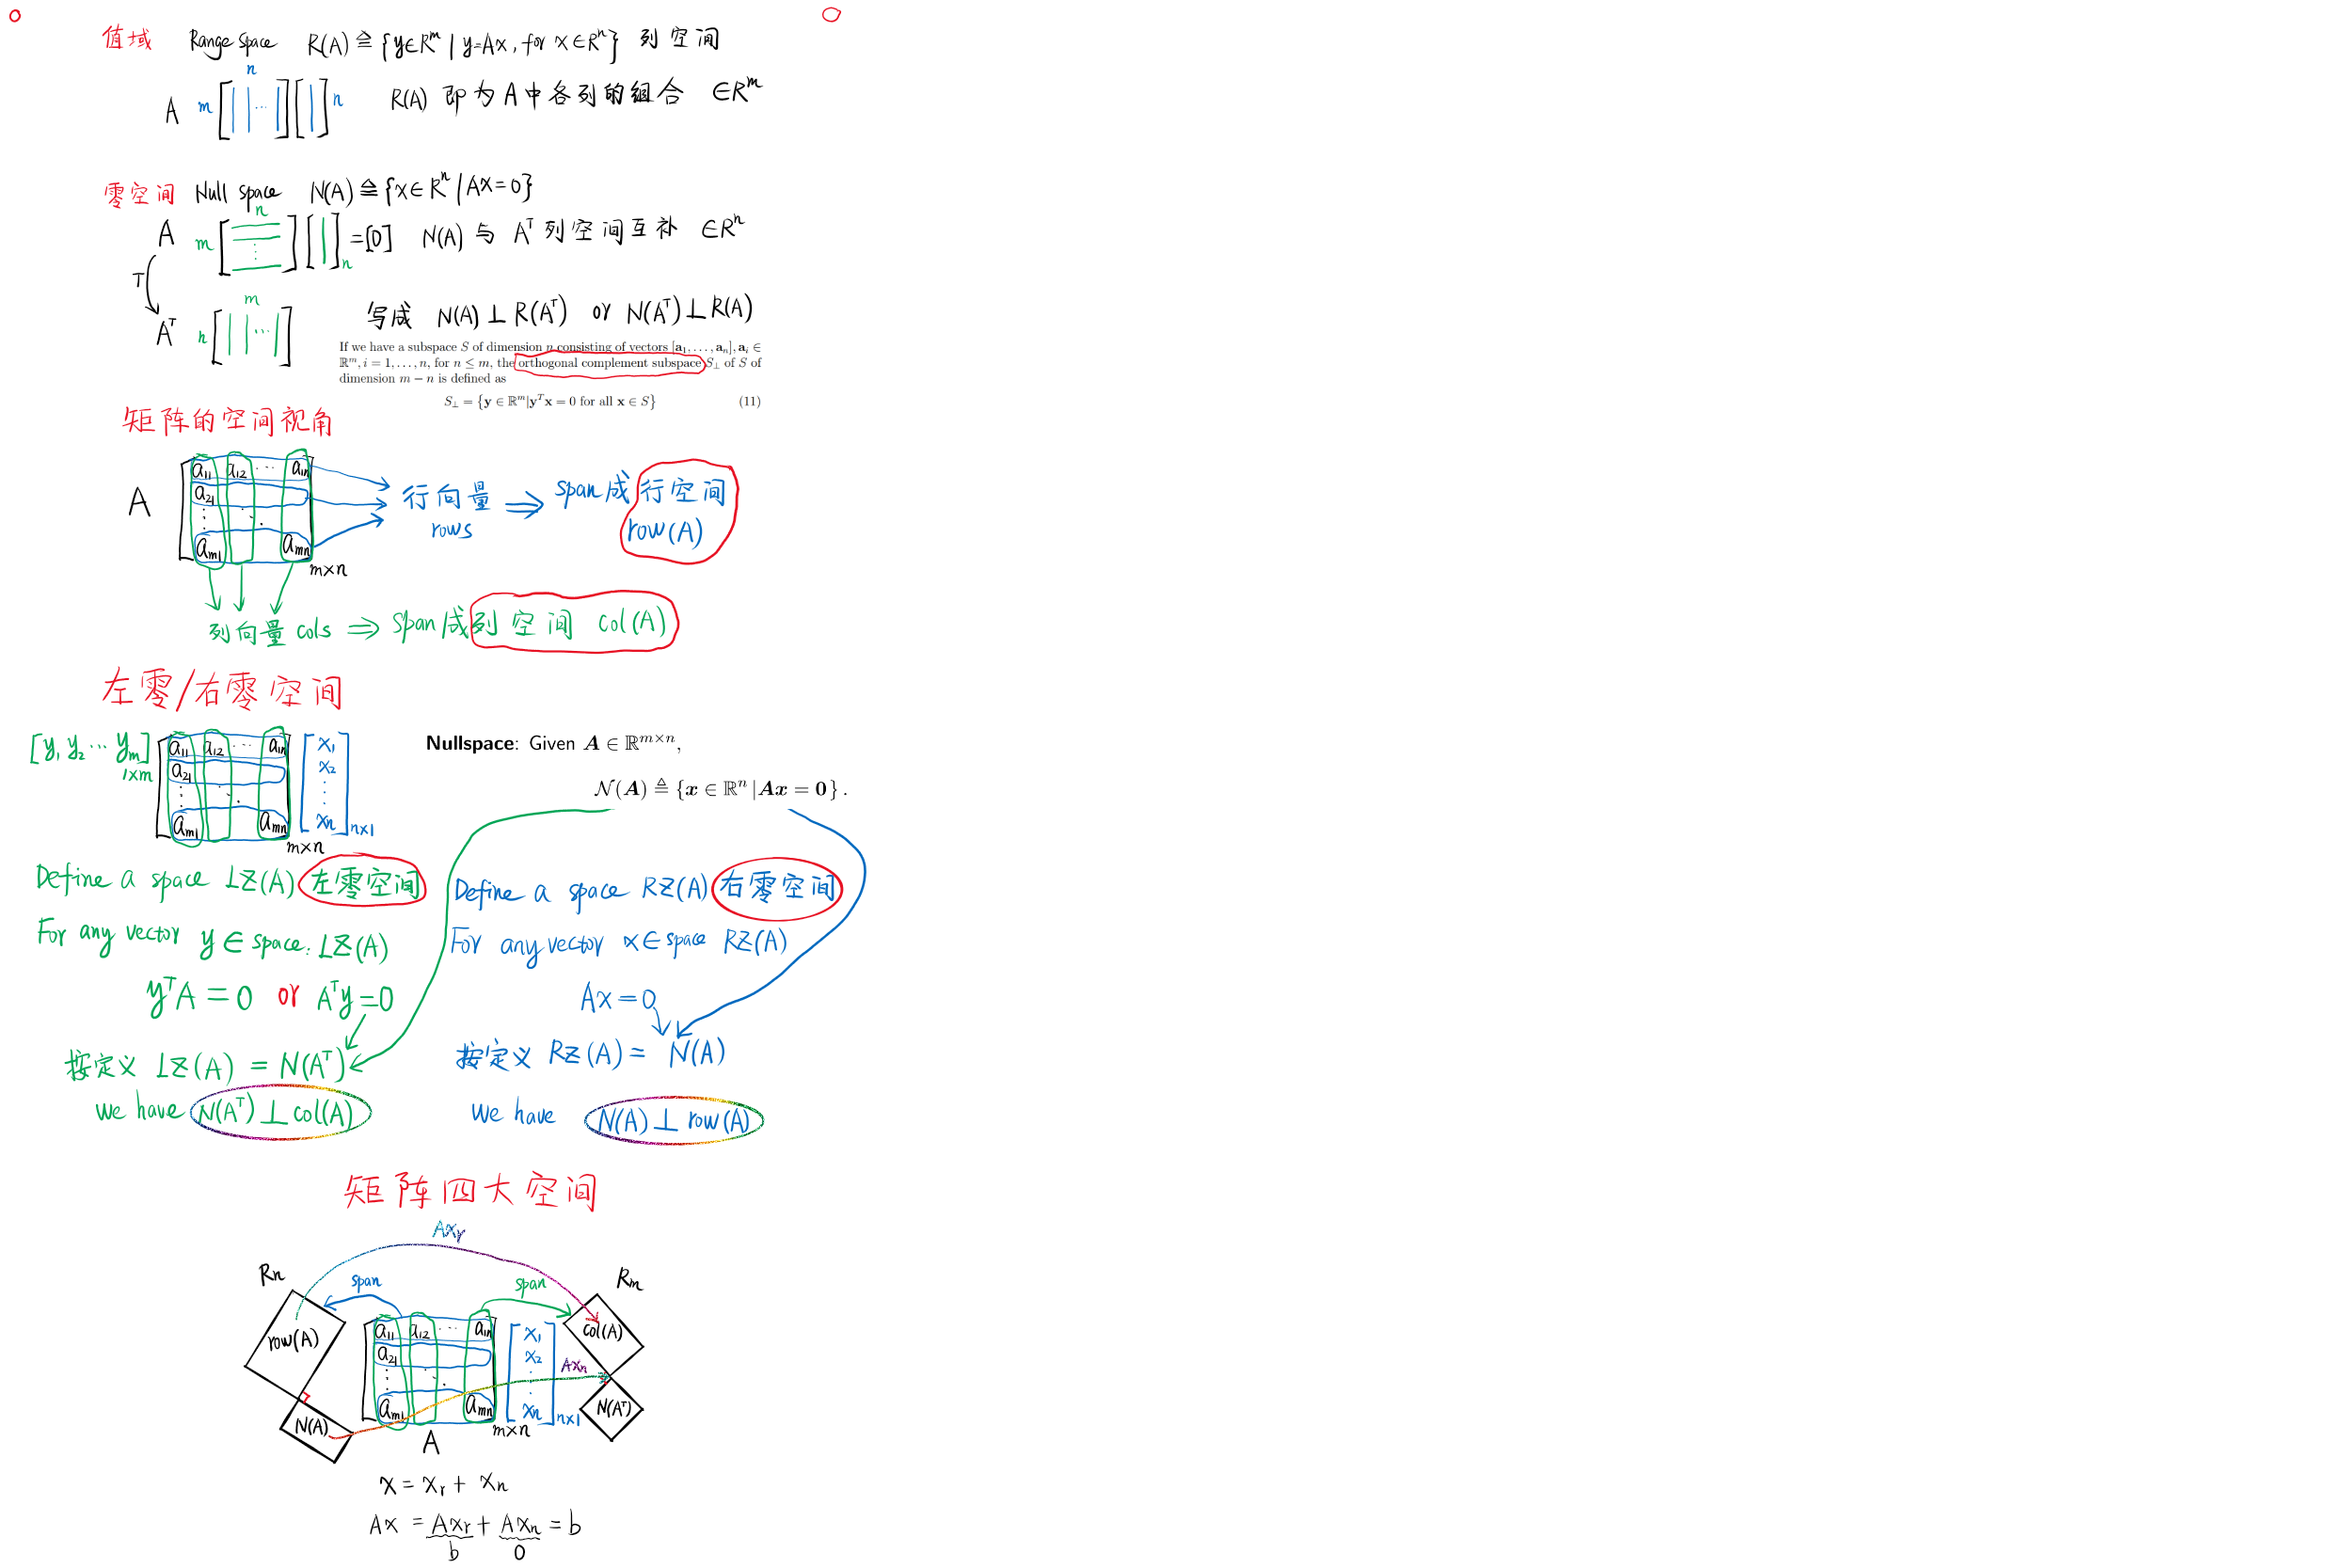 值域 Range space R(A) ≜ {y∈Rᵐ | y=Ax, for x∈Rⁿ} 列空间
n
A m [ | | ... | ] [ | ] n R(A) 即为A中各列的组合 ∈Rᵐ
零空间 Null space N(A) ≜ {x∈Rⁿ | Ax=0}
n
A m [ ⋮ ] [ | ] n =[0] N(A) 与 Aᵀ 列空间互补 ∈Rⁿ
T
m
Aᵀ n [ | | ... | ]
写成 N(A)⊥R(Aᵀ) or N(Aᵀ)⊥R(A)
If we have a subspace S of dimension n consisting of vectors [a₁, . . . , aₙ], aᵢ ∈
ℝᵐ, i = 1, . . . , n, for n ≤ m, the orthogonal complement subspace S⊥ of S of
dimension m − n is defined as
S⊥ = {y ∈ ℝᵐ|yᵀx = 0 for all x ∈ S} (11)
矩阵的空间视角
A
a₁₁ a₁₂ ... a₁ₙ
a₂₁
⋮ ⋱
aₘ₁ aₘₙ
m×n
行向量 ⇒ span成 行空间
rows row(A)
列向量 cols ⇒ span成 列空间 col(A)
左零/右零空间
[y₁ y₂ ... yₘ] 1×m
a₁₁ a₁₂ ... a₁ₙ
a₂₁
⋮ ⋱
aₘ₁ aₘₙ
m×n
x₁
x₂
⋮
xₙ
n×1
Nullspace: Given A ∈ ℝᵐˣⁿ,
𝒩(A) ≜ {x ∈ ℝⁿ |Ax = 0} .
Define a space LZ(A) 左零空间
For any vector y ∈ space: LZ(A)
yᵀA = 0 or Aᵀy=0
按定义 LZ(A) = N(Aᵀ)
we have N(Aᵀ)⊥col(A)
Define a space RZ(A) 右零空间
For any vector x∈space RZ(A)
Ax=0
按定义 RZ(A) = N(A)
we have N(A)⊥row(A)
矩阵四大空间
Axᵣ
Rn span span Rm
row(A)
a₁₁ a₁₂ ... a₁ₙ
a₂₁
⋮ ⋱
aₘ₁ aₘₙ
m×n
x₁
x₂
⋮
xₙ
n×1
col(A)
Axₙ
N(A)
N(Aᵀ)
A
x = xᵣ + xₙ
Ax = Axᵣ + Axₙ = b
b 0